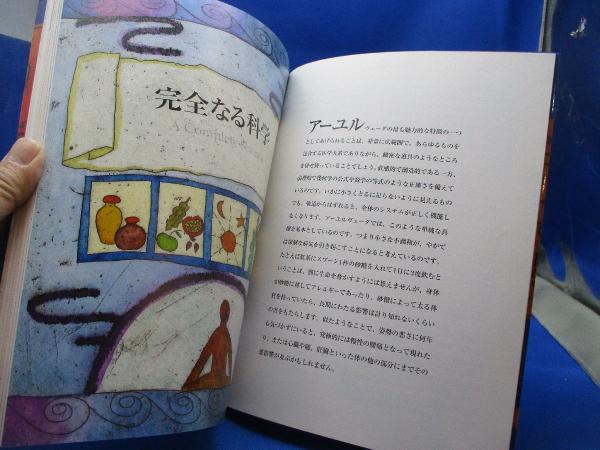 完全なる科学
A Complete
アーユル ヴェーダの最も魅力的な特徴の一つ
としてあげられることは、非常に広範囲で、あらゆるものを
包含する医学大系でありながら、細密な道具のようなところ
を併せ持っていることでしょう。直感的で創造的である一方、
な正確さを備えて
いるのです。いかに小さくとるに足らないように見えるもの
でも、軌道からはずれると、全体のシステムが正しく機能し
なくなります。アーユルヴェーダでは、このような単純な真
理を基本としているのです。つまり小さな不調和が、やがて
は深刻な病気を引き起こすことになると考えているのです。
たとえば紅茶にスプーン1杯の砂糖を入れて1日に3度飲むと
いうことは、別に生命を脅かすようには思えませんが、身体
が砂糖に対してアレルギーであったり、砂糖によって太る体
質を持っていたら、長期にわたる影響は計り知れないくらい
の害をもたらします。似たようなことで、姿勢の悪さに何年
も気づかずにいると、究極的には慢性の腰痛となって現れた
り、または心臓や肺、肝臓といった体の他の部分にまでその
悪影響が及ぶかもしれません。